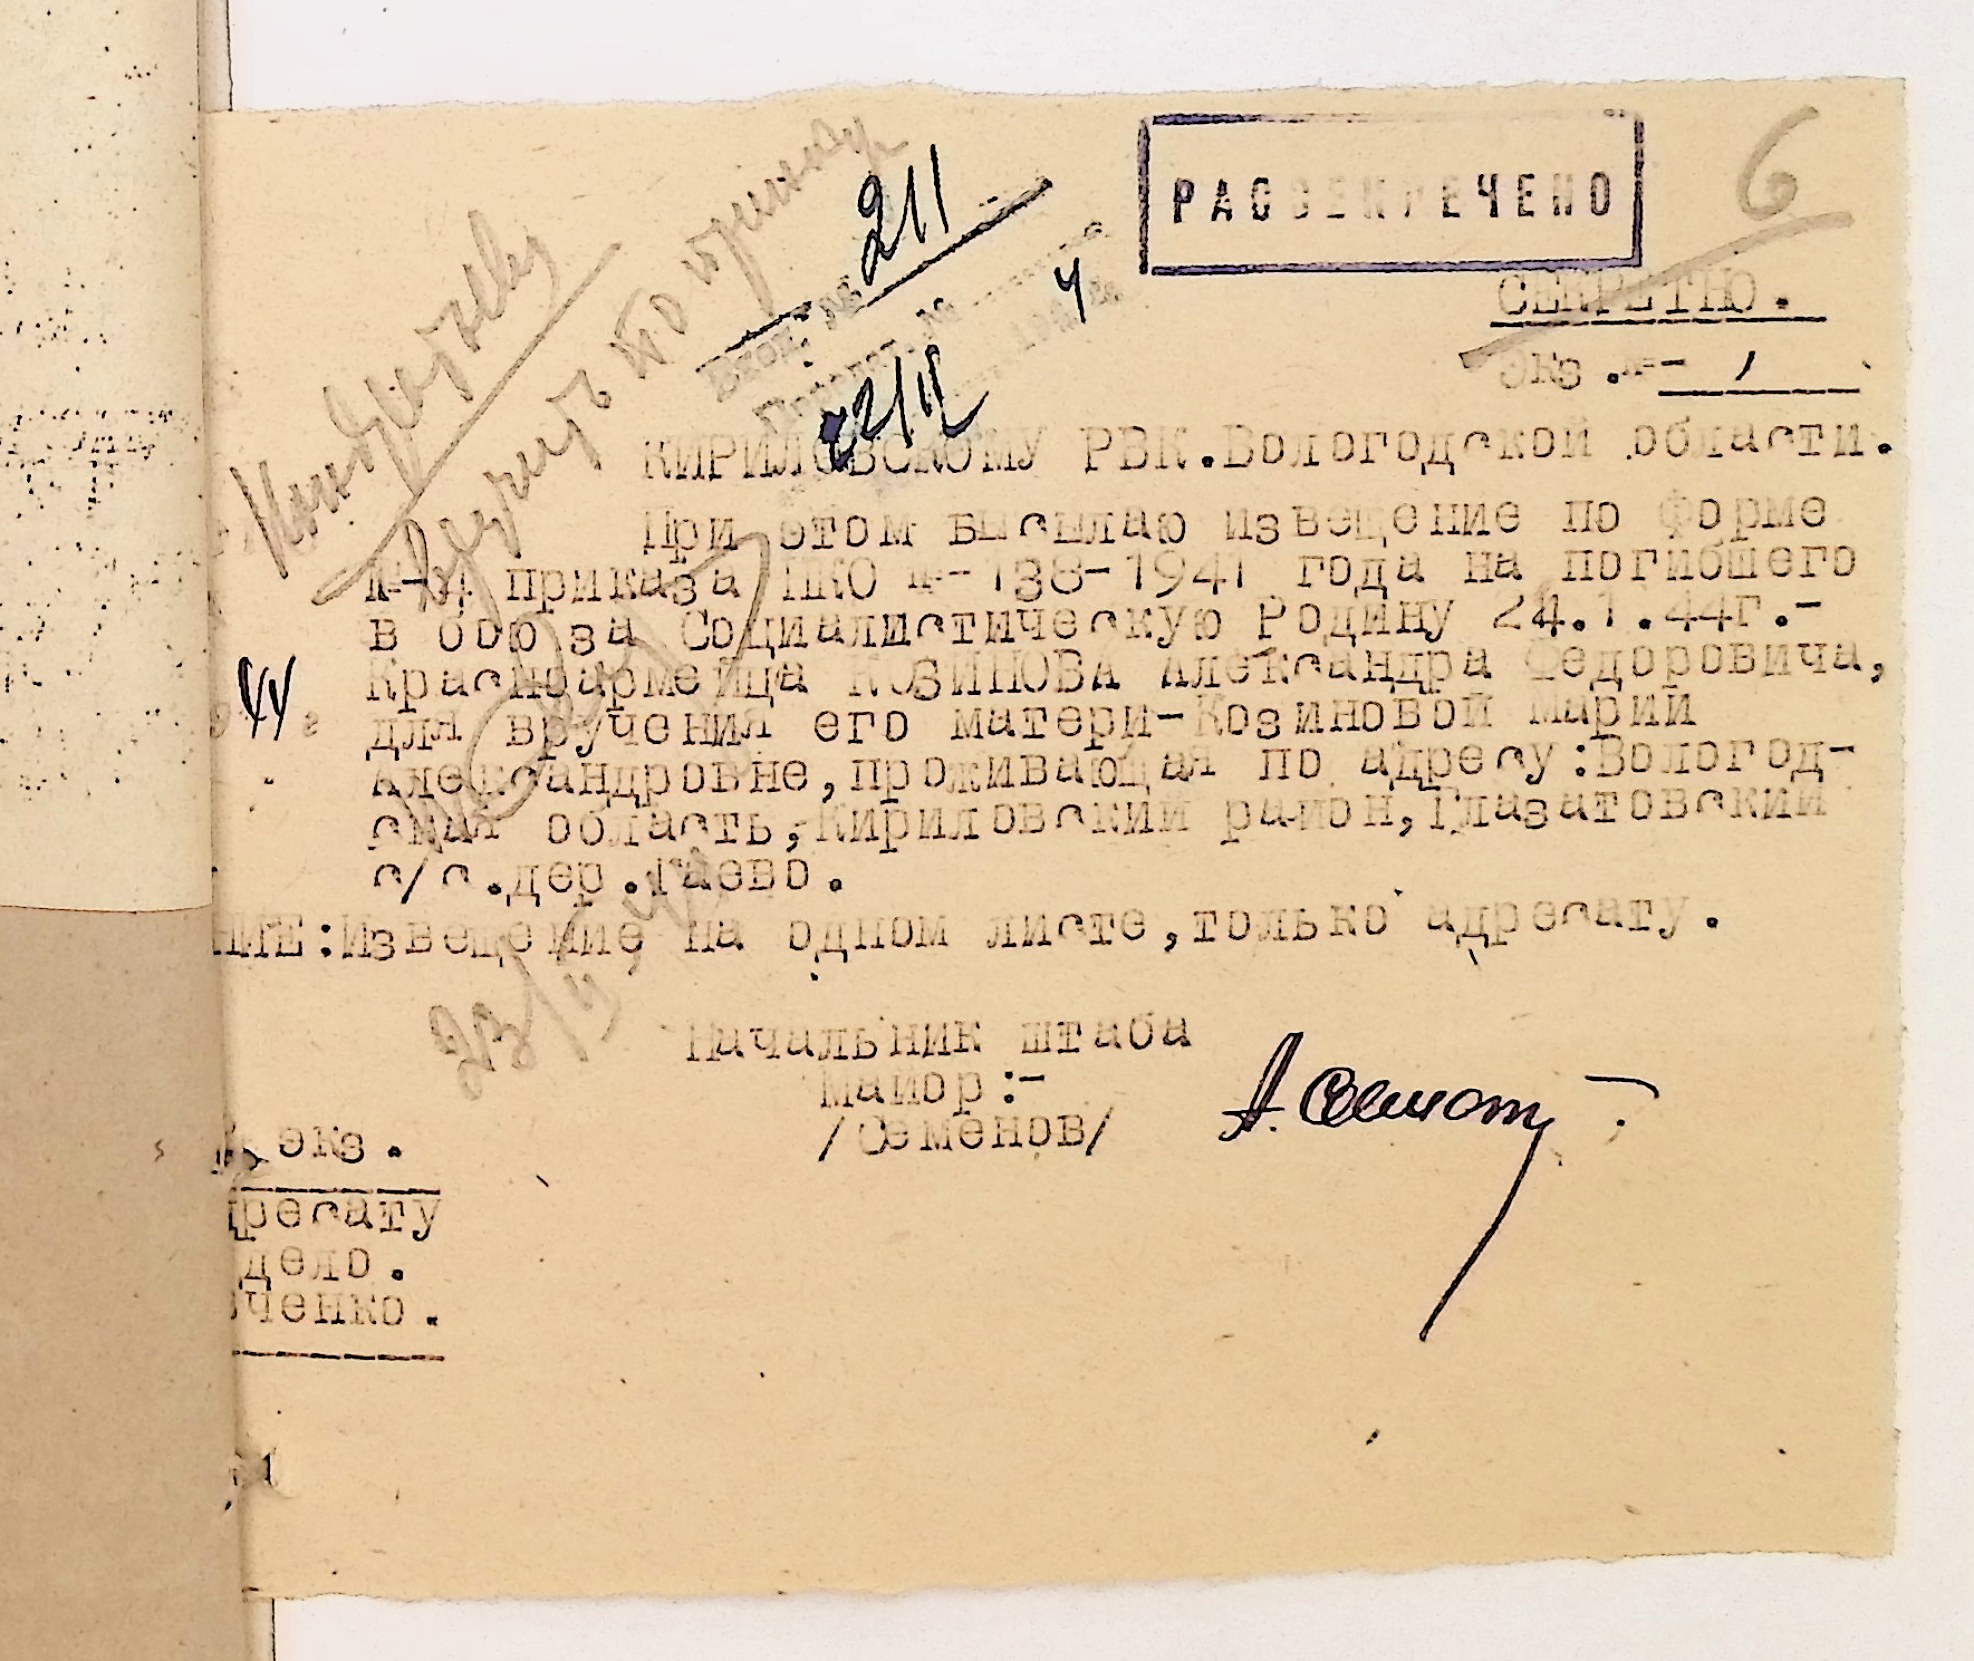 РАССЕКРЕЧЕНО
6
СЕКРЕТНО.
Экз.№- 1
211
22/II
КИРИЛОВСКОМУ РВК.Вологодской области.
При этом высылаю извещение по Форме
№-04 приказа НКО №-138-1941 года на погибшего
в бою за Социалистическую Родину 24.1.44г.-
Красноармейца КОЗИНОВА Александра Федоровича,
44 г
для вручения его матери-Козиновой Марии
Александровне,проживающая по адресу:Вологод-
ская область,Кириловский район,Глазатовский
с/с.дер.Гаево.
НИЕ:Извещение на одном листе,только адресату.
Начальник штаба
Майор:-
/Семенов/
экз.
дресату
дело.
вченко.